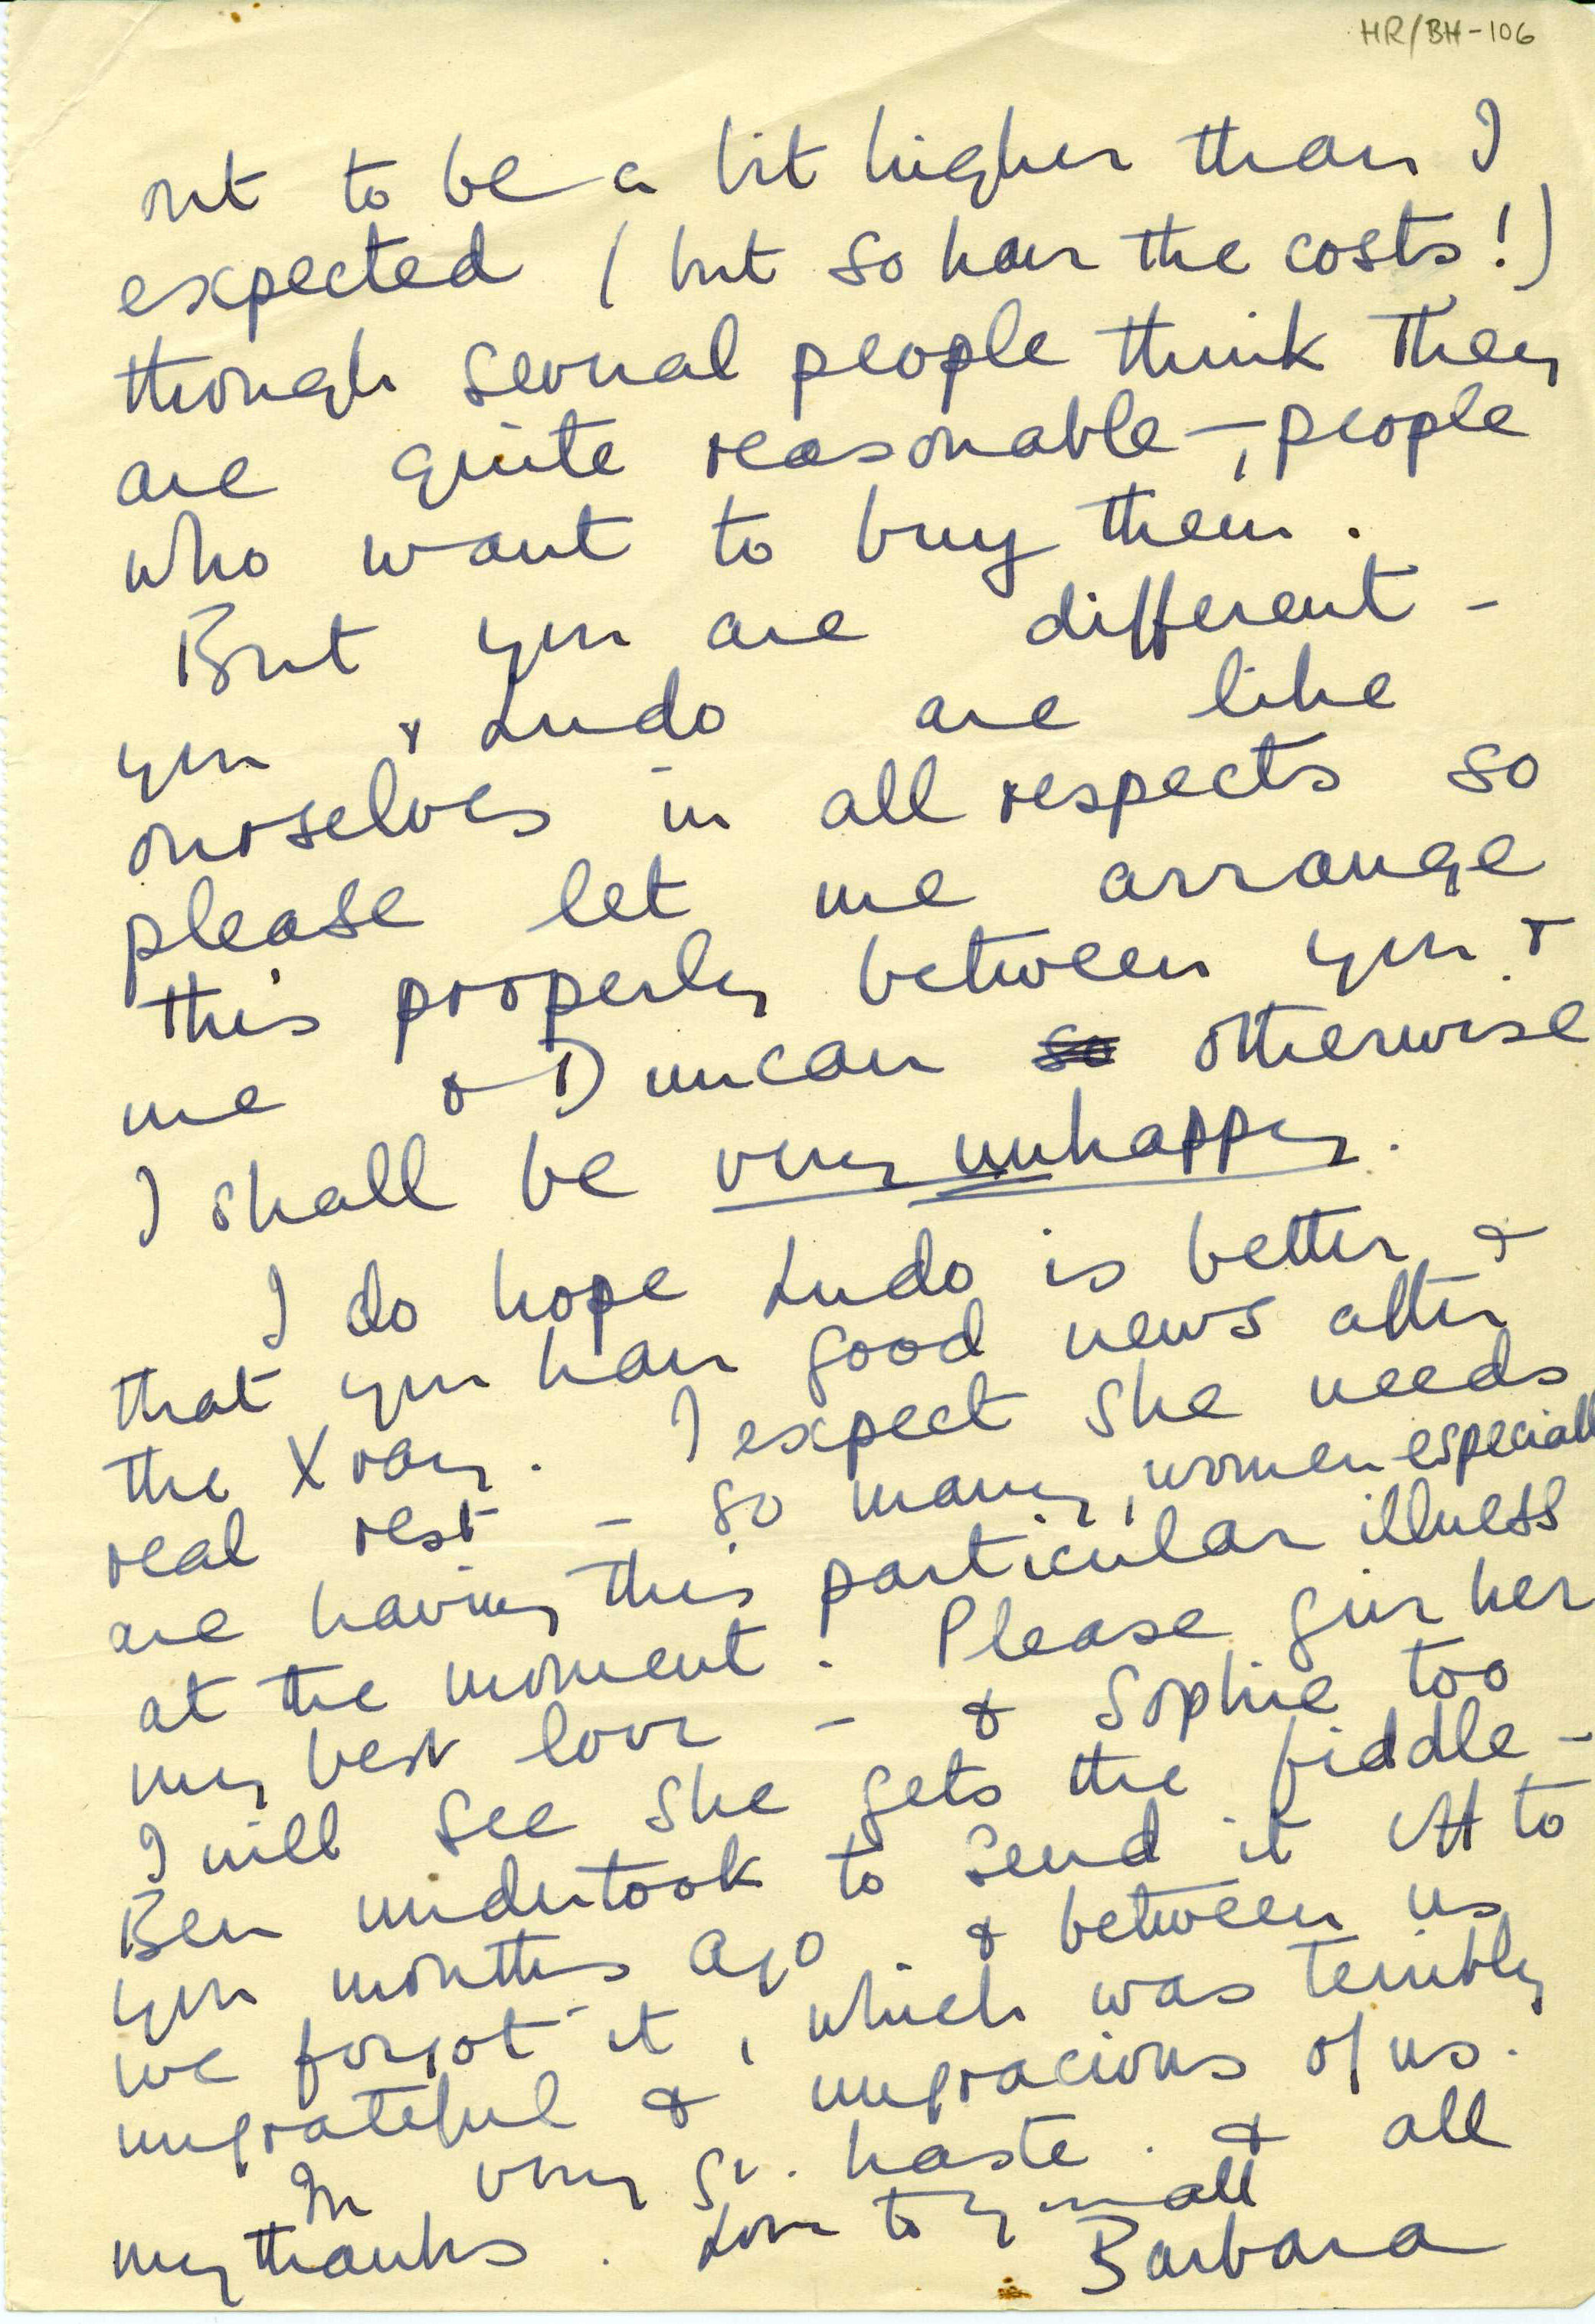 HR/BH-106
out to be a bit higher than I
expected (but so have the costs!)
though several people think they
are quite reasonable —, people
who want to buy them.
But you are different -
you & Ludo are like
ourselves in all respects so
please let me arrange
this properly between you &
me & Duncan so otherwise
I shall be very unhappy.
I do hope Ludo is better &
that you have good news after
the Xray. I expect she needs
real rest - so many, women especially
are having this particular illness
at the moment. Please give her
my best love - & Sophie too
I will see she gets the fiddle -
Ben undertook to send it off to
you months ago & between us
we forgot it, which was terribly
ungrateful & ungracious of us.
In very gt. haste. & all
my thanks. Love to you all
Barbara